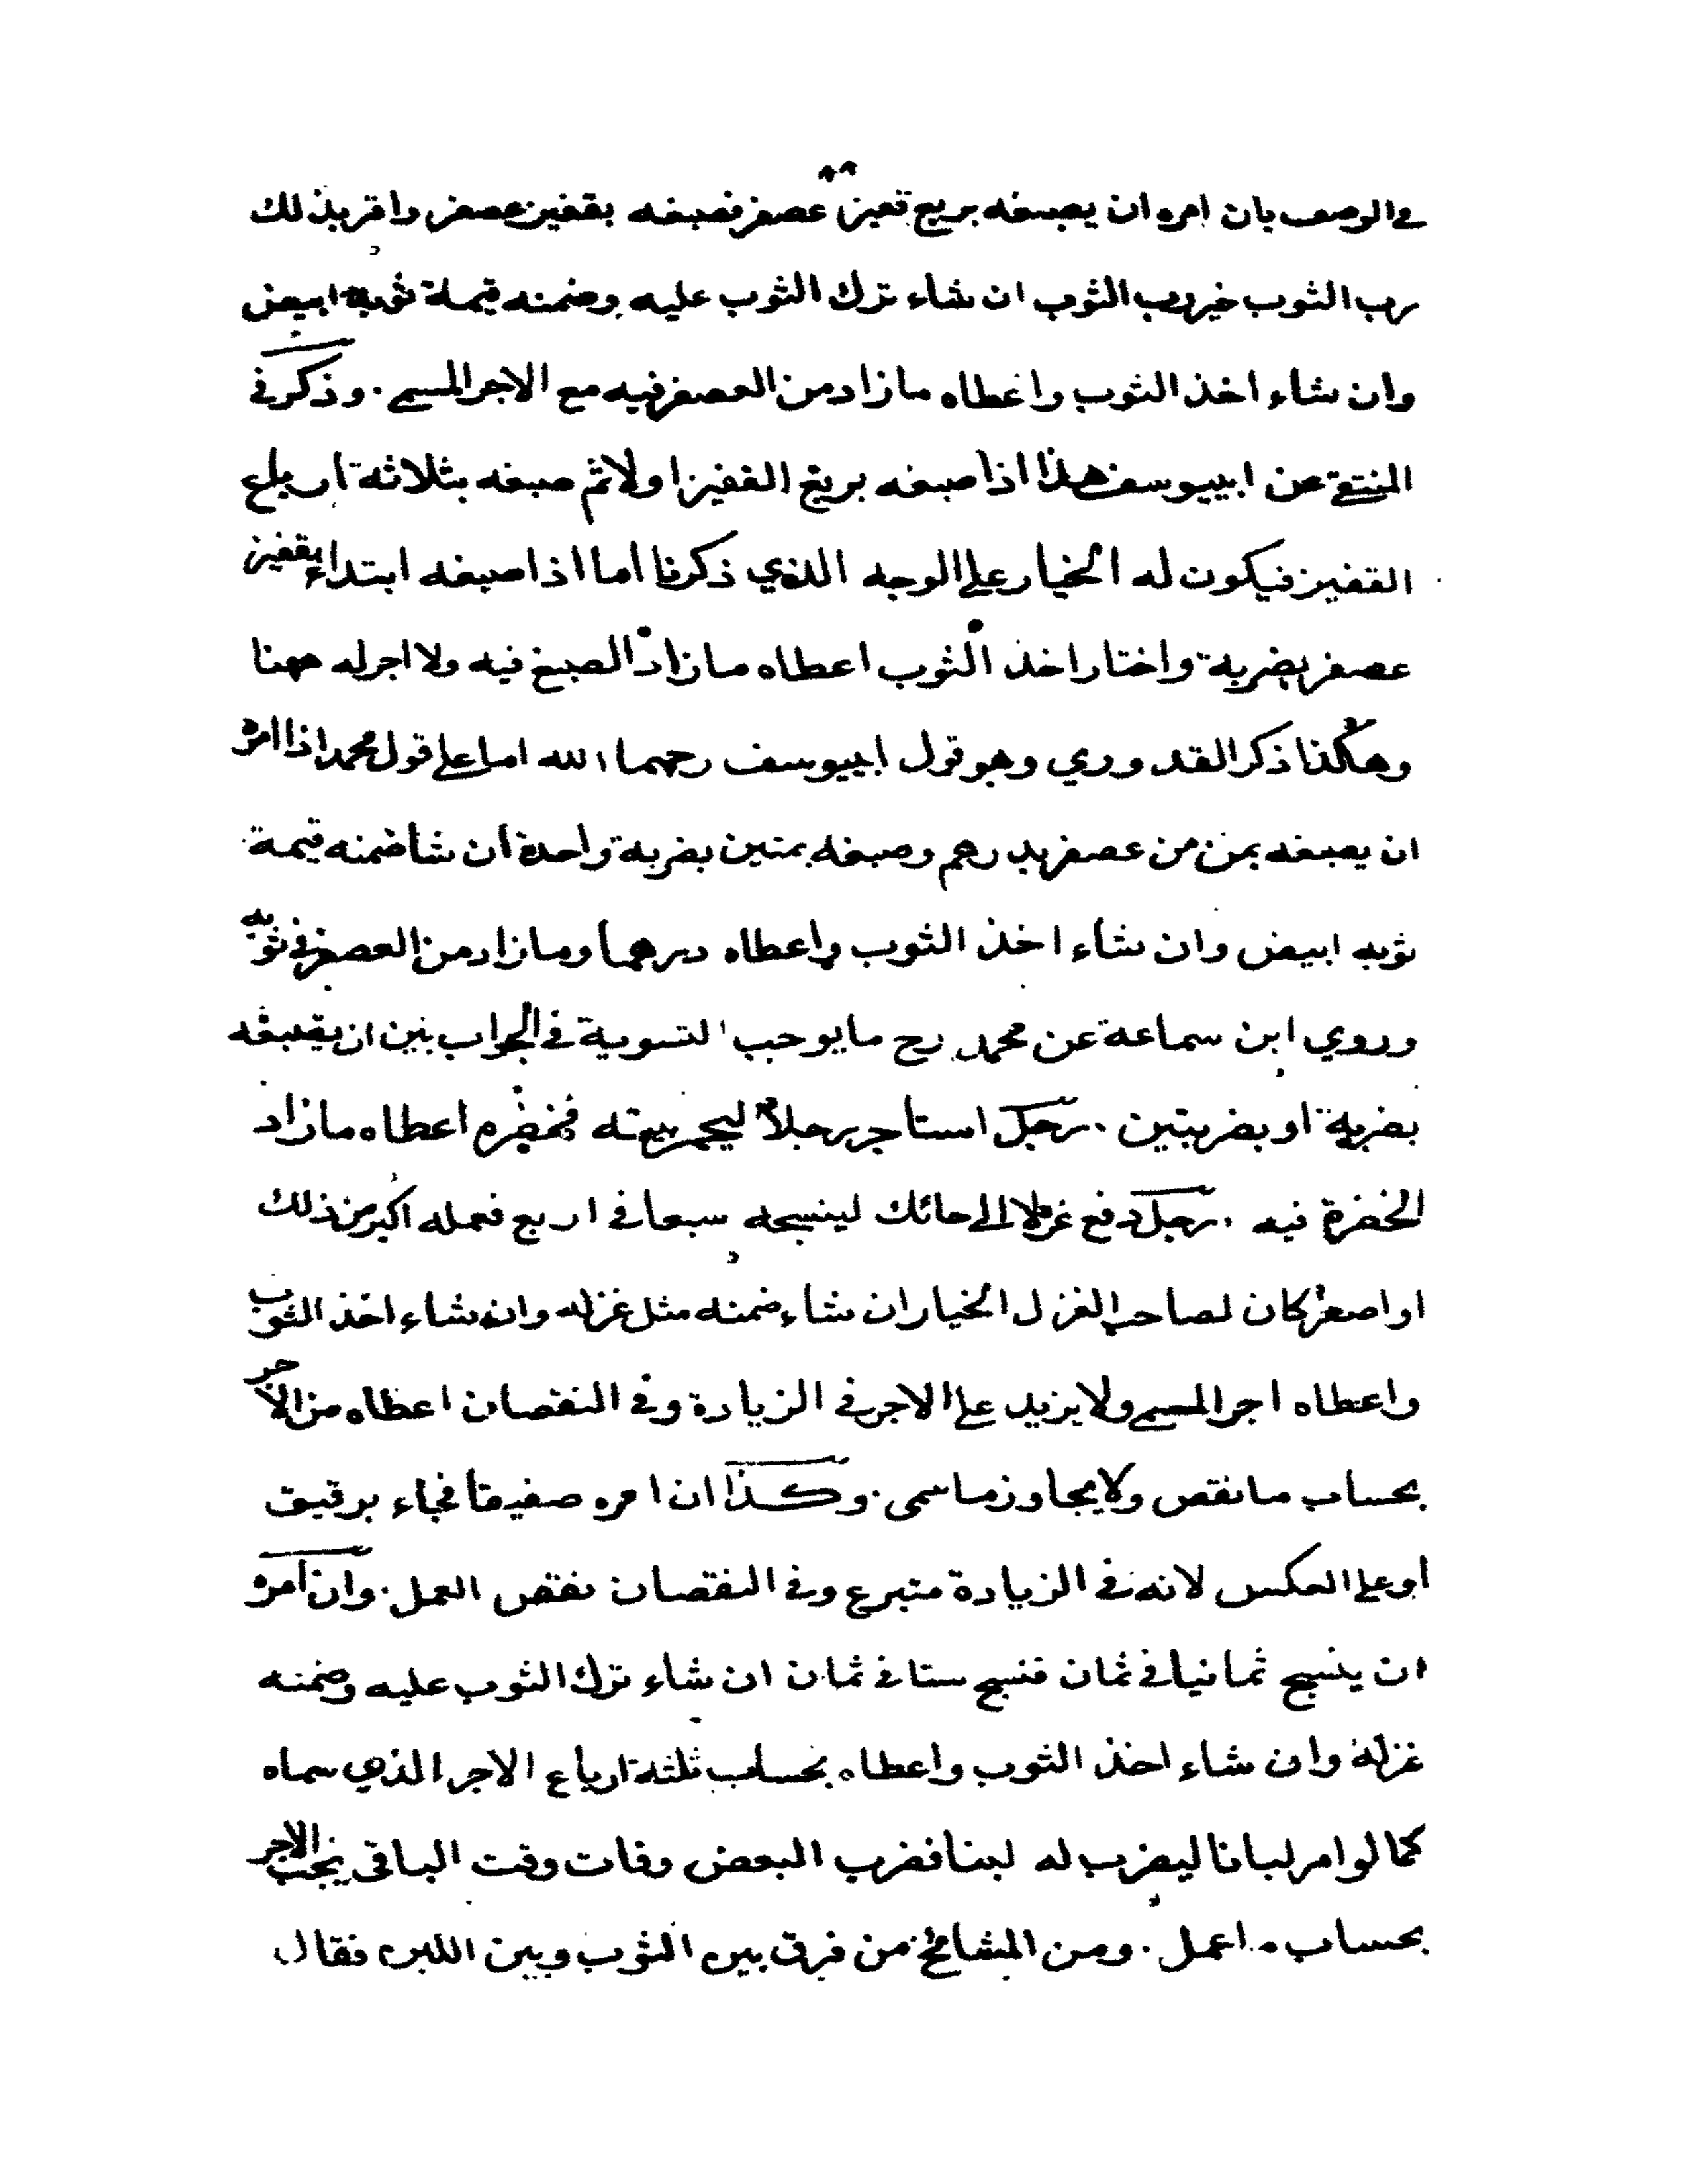 في الوصف بان امره ان يصبغه بربع قفيز عصفر فصبغه بقفيز عصفر واقر بذلك
رب الثوب خير رب الثوب ان شاء ترك الثوب عليه وضمنه قيمة ثوبه ابيض
وان شاء اخذ الثوب واعطاه ما زاد من العصفر فيه مع الاجر المسمى . وذكر في
المنتقى عن ابييوسف هذا اذا صبغه بربع القفيز اولا ثم صبغه بثلاثة ارباع
القفيز فيكون له الخيار على الوجه الذي ذكرنا اما اذا صبغه ابتداء بقفيز
عصفر بضربة واختار اخذ الثوب اعطاه ما زاد الصبغ فيه ولا اجر له ههنا
وهكذا ذكر القدوري وهو قول ابييوسف رحمهما الله اما على قول محمد اذا امره
ان يصبغه بمن من عصفر بدرهم وصبغه بمنين بضربة واحدة ان شا ضمنه قيمة
ثوبه ابيض وان شاء اخذ الثوب واعطاه درهما وما زاد من العصفر في ثوبه
وروي ابن سماعة عن محمد رح ما يوجب التسوية في الجواب بين ان يصبغه
بضربة او بضربتين . رجل استاجر رجلا ليحمر بيته فخضره اعطاه ما زاد
الخضرة فيه . رجل دفع غزلا الى حائك لينسجه سبعا في اربع فعمله اكبر من ذلك
او اصغر كان لصاحب الغزل الخيار ان شاء ضمنه مثل غزله وان شاء اخذ الثوب
واعطاه اجر المسمى ولا يزيد على الاجر في الزيادة وفي النقصان اعطاه من الاجر
بحساب ما نقص ولا يجاوز ما سمى . وكذا ان امره صفيقا فجاء برقيق
او على العكس لانه في الزيادة متبرع وفي النقصان نقص العمل . وان امره
ان ينسج ثمانيا في ثمان فنسج ستا في ثمان ان شاء ترك الثوب عليه وضمنه
غزله وان شاء اخذ الثوب واعطاه بحساب ثلثة ارباع الاجر الذي سماه
كما لو امر لبانا ليضرب له لبنا فضرب البعض وفات وقت الباقي يجب الاجر
بحساب ما عمل . ومن المشائخ من فرق بين الثوب وبين اللبن فقال